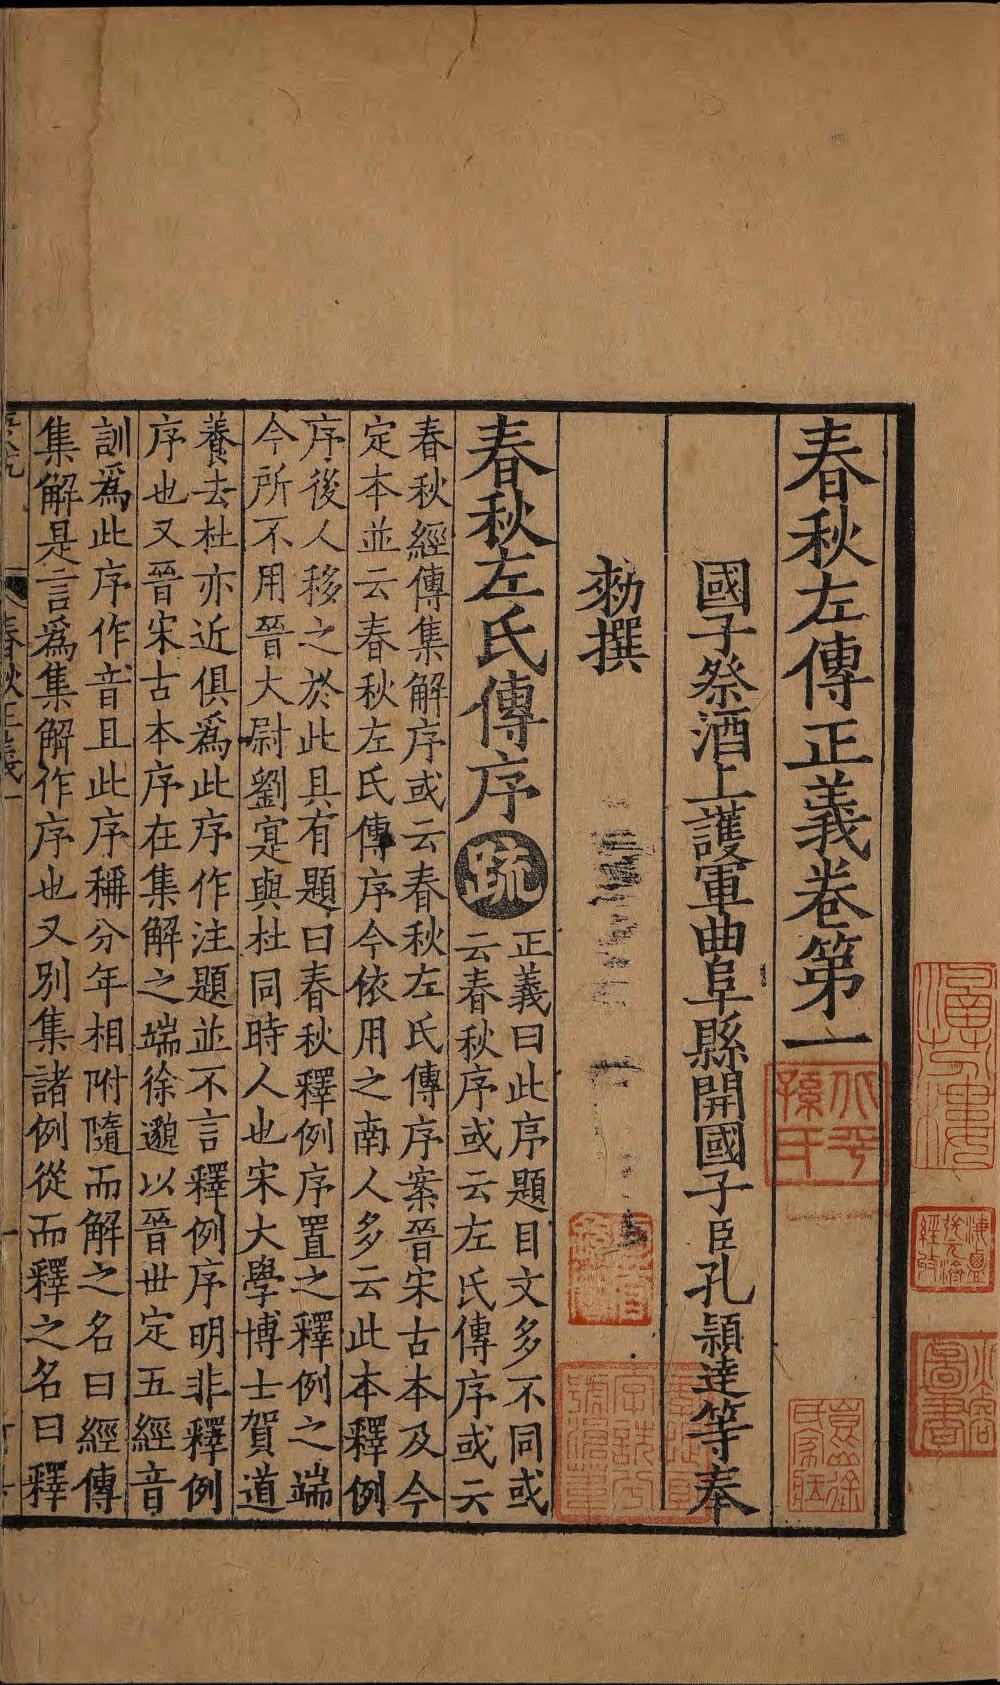 春秋左傳正義卷第一
國子祭酒上護軍曲阜縣開國子臣孔穎達等奉
勑撰
春秋左氏傳序
疏
正義曰此序題目文多不同或
云春秋序或云左氏傳序或云
春秋經傳集解序或云春秋左氏傳序案晉宋古本及今
定本並云春秋左氏傳序今依用之南人多云此本釋例
序後人移之於此且有題曰春秋釋例序置之釋例之端
今所不用晉大尉劉寔與杜同時人也宋大學博士賀道
養去杜亦近俱爲此序作注題並不言釋例序明非釋例
序也又晉宋古本序在集解之端徐邈以晉世定五經音
訓爲此序作音且此序稱分年相附隨而解之名曰經傳
集解是言爲集解作序也又別集諸例從而釋之名曰釋
春秋正義一
北平孫氏